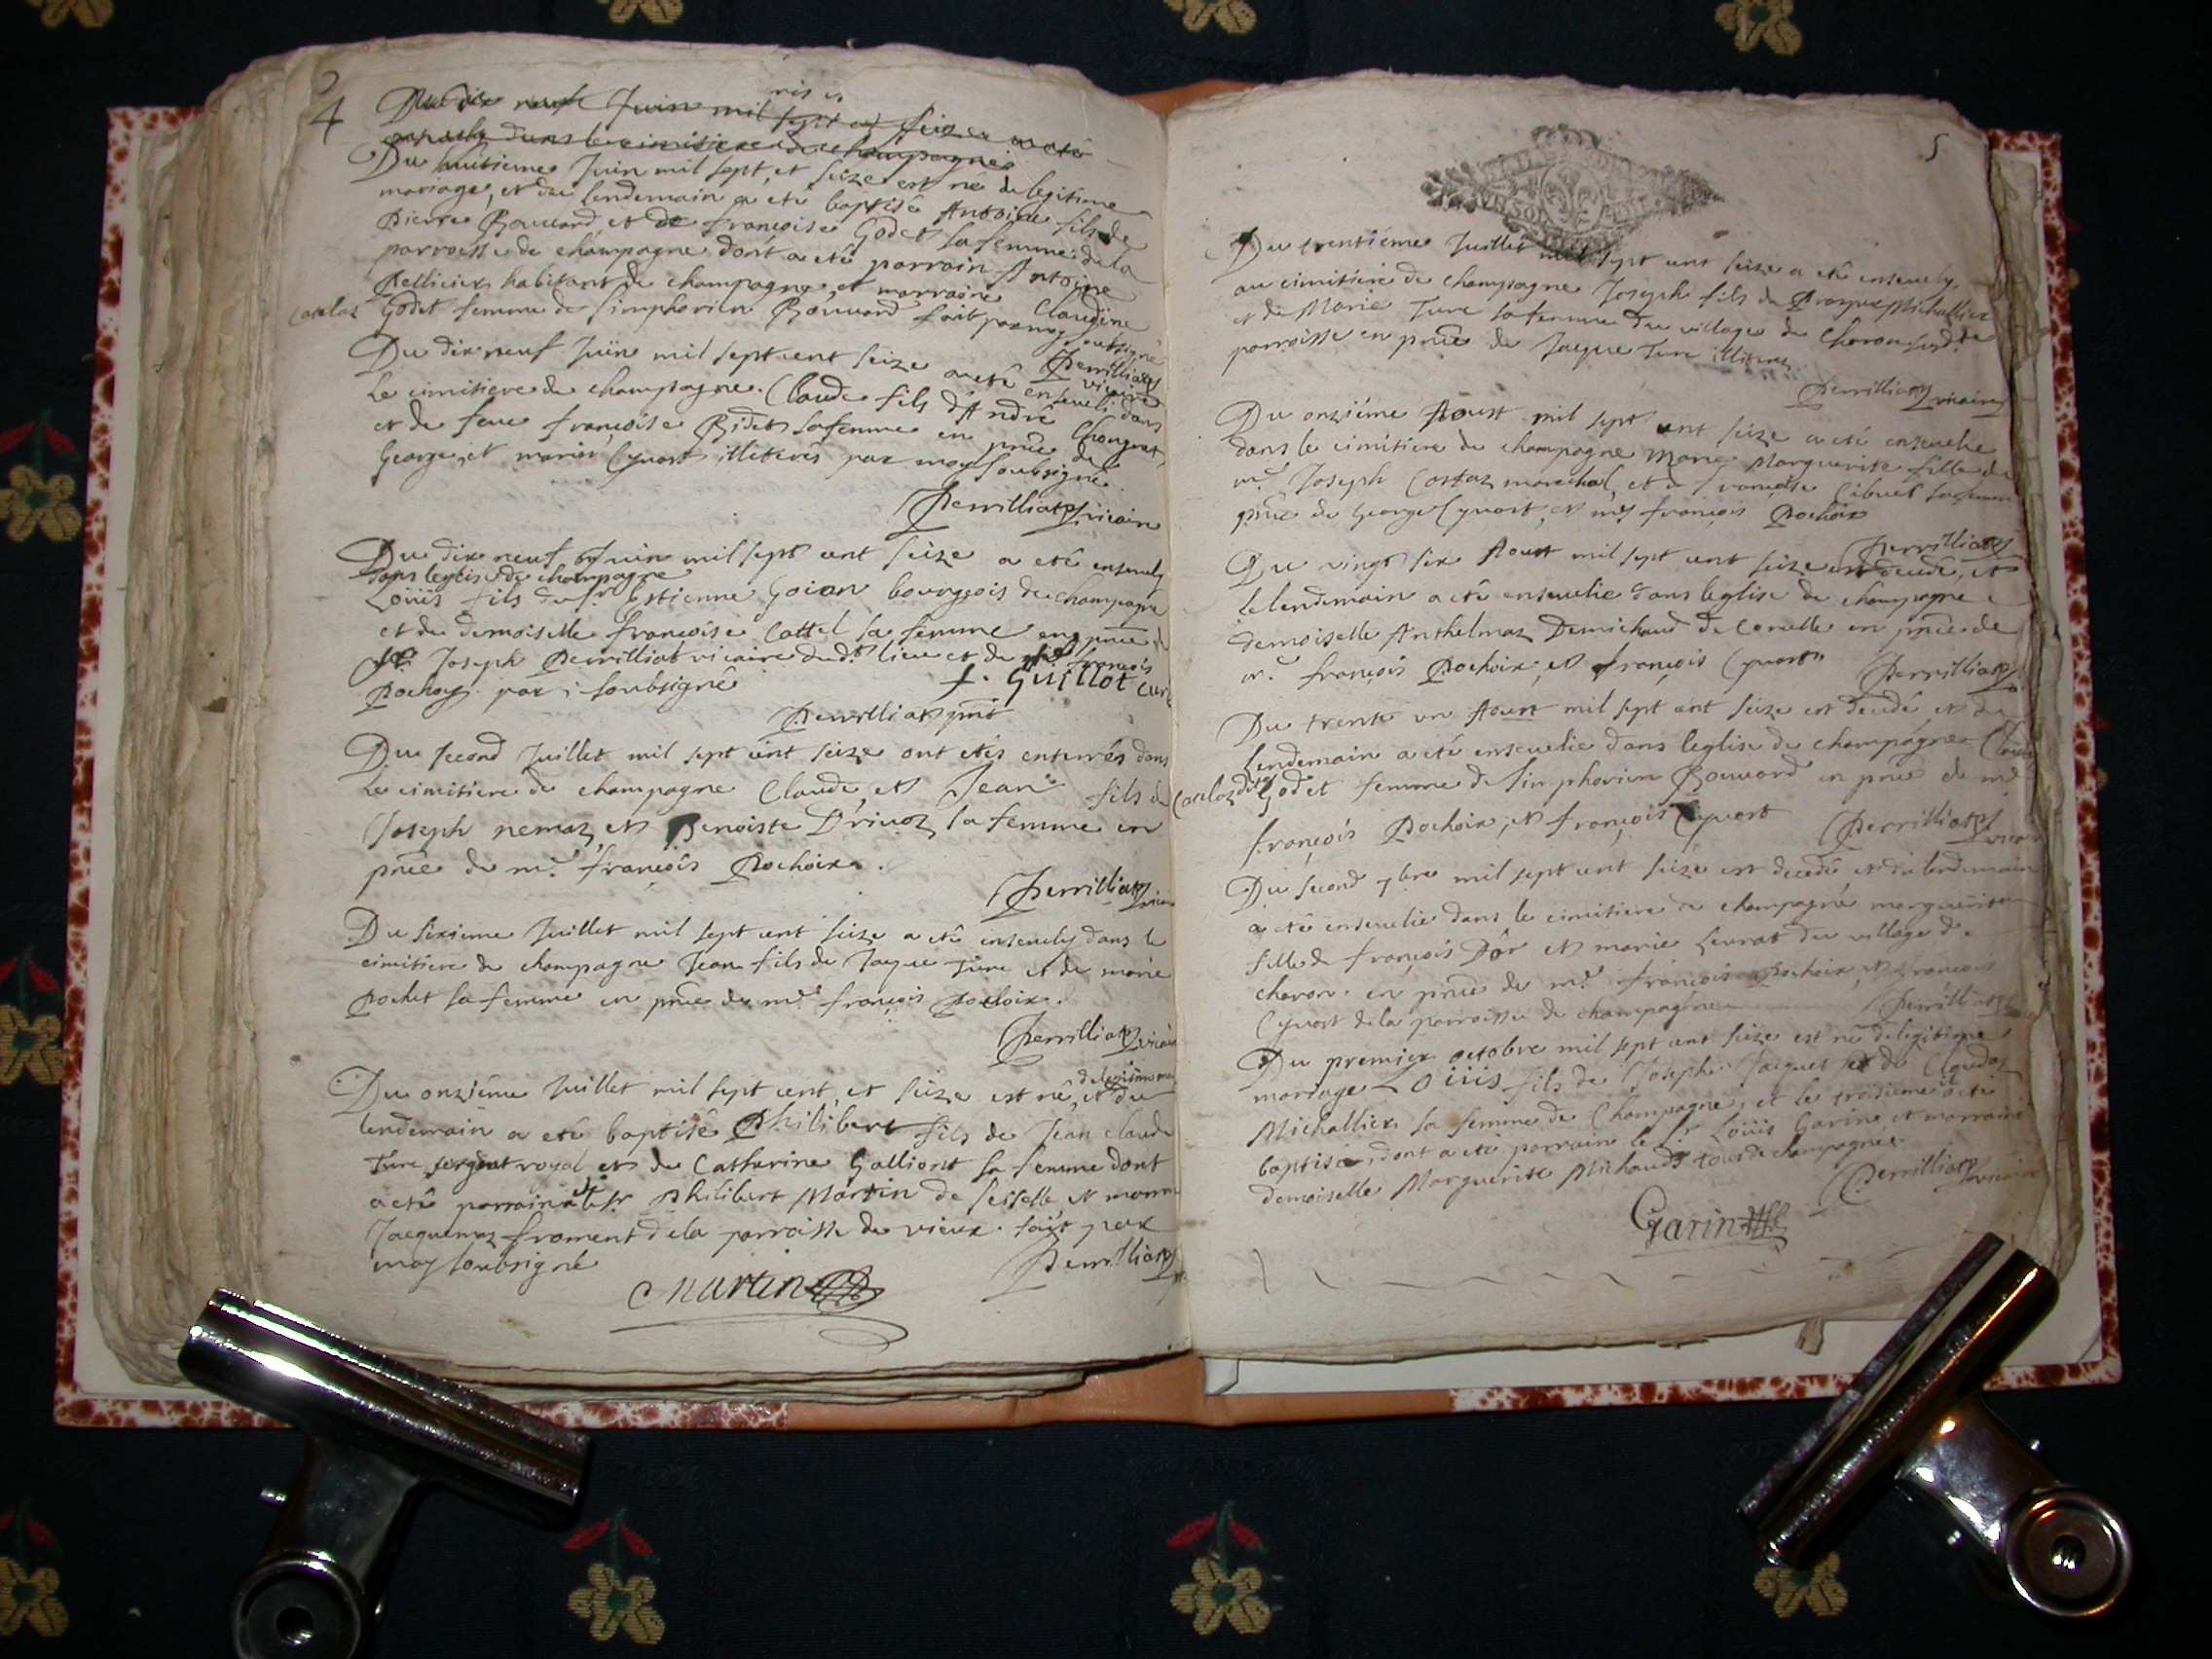 4
Du dix neuf Juin mil sept cent seize a eté
ensevely dans le cimitiere de champagne
Du huitieme Juin mil sept, et seize est né de legitime
mariage, et du lendemain a eté baptisé Antoine fils de
pierre Bouvard et de françoise Godet sa femme de la
parroisse de champagne dont a eté parrain Antoine
Pellicier habitant de champagne, et marraine Claudine
Godet femme de simphorien Bouvard fait par moy soubsigné
Perrilliat vicaire
Du dix neuf Juin mil sept cent seize a eté enseveli dans
Le cimitiere de champagne Claude fils d'André
et de feue françoise sa femme en pñce de
George, et illiteres par moy soubsigné
Perrilliat vicaire
Du dix neuf Juin mil sept cent seize a eté ensevely
dans leglise de champagne
Loüis fils du sr Estienne Goian bourgeois de champagne
et de demoiselle françoise Cattel sa femme en pñce de
Joseph Perrilliat vicaire dud.t lieu et de françois
Rochoy par soubsigné f. Guillot curé
Perrilliat pñt
Du second Juillet mil sept cent seize ont etés enterrés dans
Le cimitiere de champagne Claude, et Jean fils de
Joseph nemoz, et Benoiste Drivoz sa femme en
pñce de m.e françois Rochoix.
Perrilliat vicaire
Du sixieme Juillet mil sept cent seize a eté ensevely dans le
cimitiere de champagne Jean fils de Jaque Ture et de marie
Rochet sa femme en pñce de m.e françois Rochoix.
Perrilliat vicaire
Du onziéme Juillet mil sept cent, et seize est né, et du
lendemain a eté baptisé Philibert fils de Jean claude
Ture sergent royal et de Catherine Galliont sa femme dont
a eté parrain le sr Philibert Martin de seisselle et marraine
Jacquemaz froment de la parroisse de vieux. fait par
moy soubsigné Perrilliat
Martin
5
Du trentiéme Juillet mil sept cent seize a eté ensevely
au cimitiere de champagne Joseph fils de Prosper Michallier
et de Marie Ture sa femme du village de Charon sus d.te
parroisse en pñce de Jaque Ture illitere
Perrilliat vicaire
Du onziéme Aoust mil sept cent seize a eté ensevelie
dans le cimitiere de champagne Marie Marguerite fille de
m.e Joseph Costaz marechal, et de françoise Cibuet sa femme
pñce de George Cyvost, et m.e françois Rochoix
Perrilliat
Du vingt six Aoust mil sept cent seize est decedé, et
Le lendemain a eté ensevelie dans leglise de champagne
demoiselle Anthelmaz Demichaud de en pñce de
m.e françois Rochoix, et françois Cyvost Perrilliat
Du trente un Aoust mil sept cent seize est decedé et du
Lendemain a eté ensevelie dans leglise de champagne
Godet femme de simphorien Bouvard en pñce de m.e
françois Rochoix, et françois Cyvost Perrilliat
Du second 7bre mil sept cent seize est decedé et du lendemain
a eté ensevelie dans le cimitiere de champagne marguerite
fille de françois Dor et marie Levrat du village de
charon. en pñce de m.e françois Rochoix, et françois
Cyvost de la parroisse de champagne Perrilliat
Du premier octobre mil sept cent seize est né de legitime
mariage Loüis fils de Joseph Jacquet et de Claudaz
Michallier sa femme de Champagne, et le troisieme a eté
baptisé, dont a eté parrain le sr Loüis Garin, et marraine
demoiselle Marguerite Michaud tous de champagne
Perrilliat vicaire
Garin